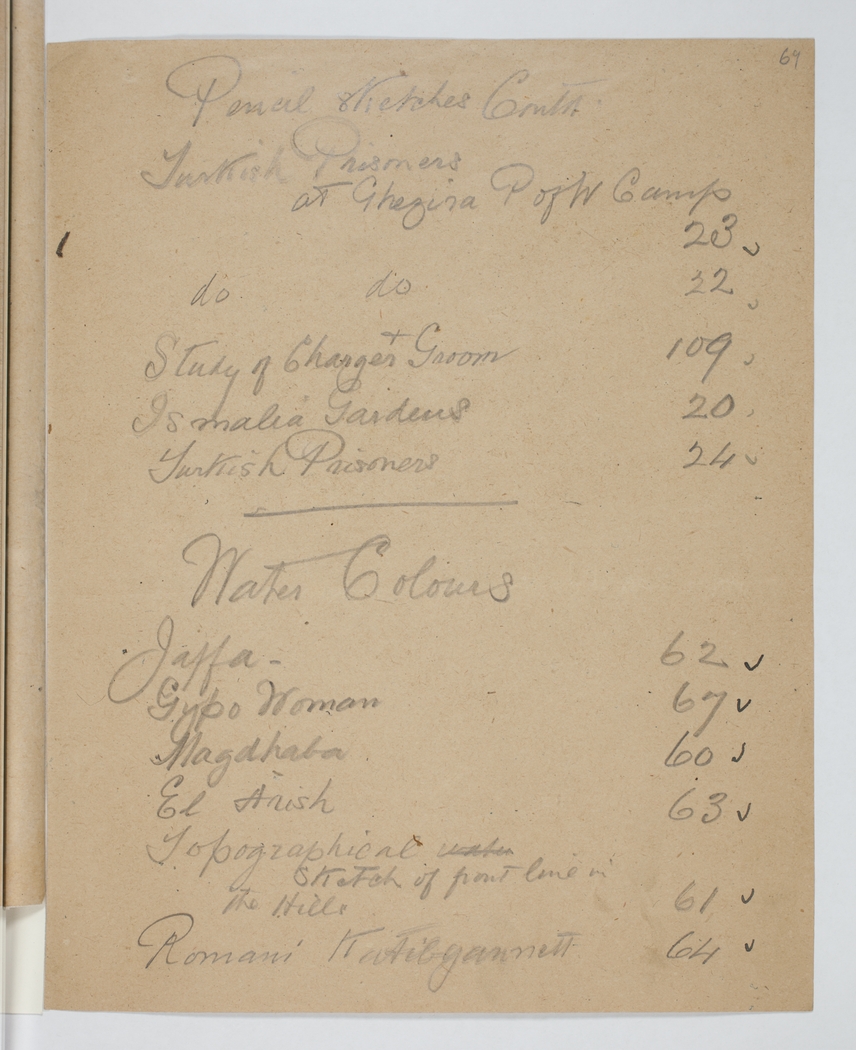 64
Pencil sketches Contd
Turkish Prisoners
at Ghezira P of W Camp
23 ✓
do do 22 ✓
Study of Charger + Groom 109 ✓
Ismalia Gardens 20 ✓
Turkish Prisoners 24 ✓
Water Colours
Jaffa - 62 ✓
Gypo Woman 67 ✓
Magdhaba 60 ✓
El Arish 63 ✓
Topographical water
Sketch of front line in
the Hills 61 ✓
Romani 64 ✓